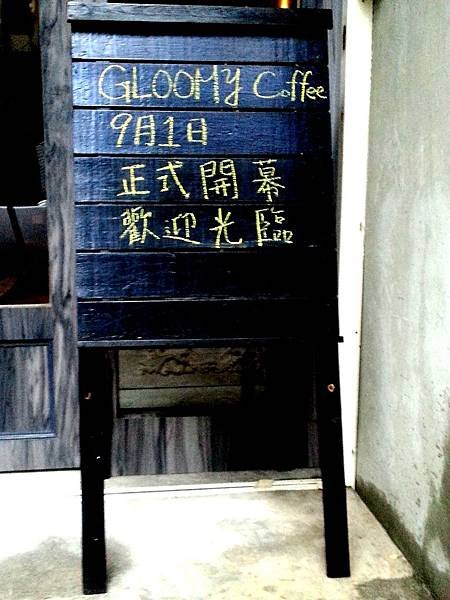 GLOOMY Coffee
9月1日
正式開幕
歡迎光臨